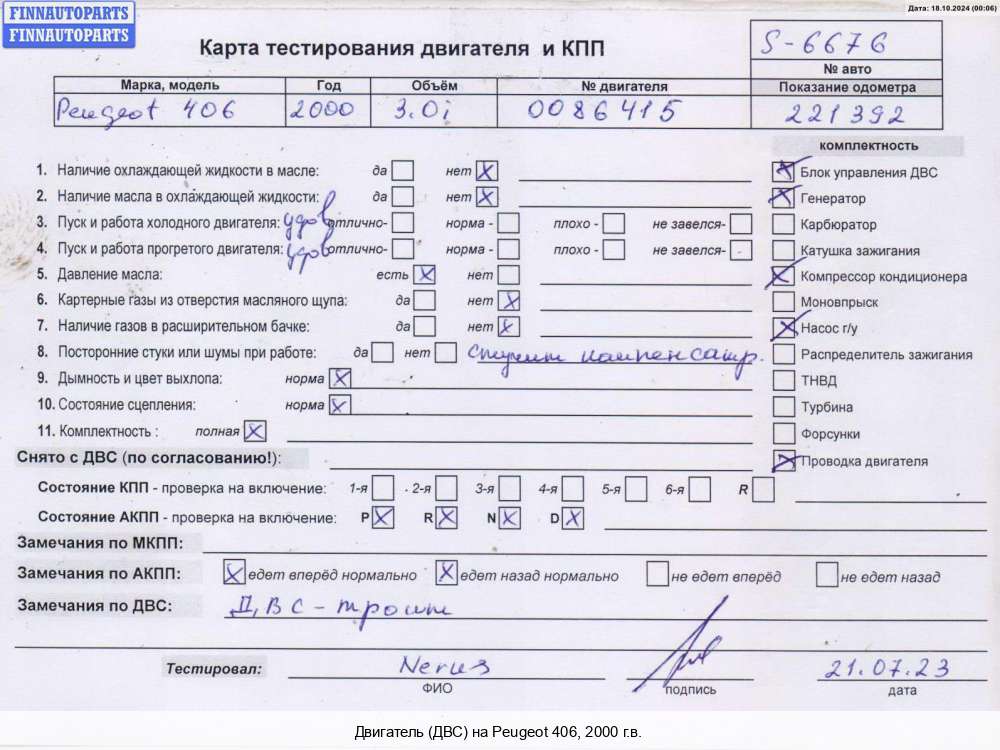 FINNAUTOPARTS
FINNAUTOPARTS
Дата: 18.10.2024 (00:06)
Карта тестирования двигателя и КПП
S-6676
№ авто
Марка, модель Год Объём № двигателя Показание одометра
Peugeot 406 2000 3.0i 0086415 221392
комплектность
1. Наличие охлаждающей жидкости в масле: да нет X
2. Наличие масла в охлаждающей жидкости: да нет X
3. Пуск и работа холодного двигателя: удов отлично- норма - плохо - не завелся-
4. Пуск и работа прогретого двигателя: удов отлично- норма - плохо - не завелся-
5. Давление масла: есть X нет
6. Картерные газы из отверстия масляного щупа: да нет X
7. Наличие газов в расширительном бачке: да нет X
8. Посторонние стуки или шумы при работе: да нет стучит компенсатр.
9. Дымность и цвет выхлопа: норма X
10. Состояние сцепления: норма X
11. Комплектность : полная X
X Блок управления ДВС
X Генератор
Карбюратор
Катушка зажигания
X Компрессор кондиционера
Моновпрыск
X Насос г/у
Распределитель зажигания
ТНВД
Турбина
Форсунки
X Проводка двигателя
Снято с ДВС (по согласованию!):
Состояние КПП - проверка на включение: 1-я 2-я 3-я 4-я 5-я 6-я R
Состояние АКПП - проверка на включение: P X R X N X D X
Замечания по МКПП:
Замечания по АКПП: X едет вперёд нормально X едет назад нормально не едет вперёд не едет назад
Замечания по ДВС: ДВС - троит
Тестировал: Nerus 21.07.23
ФИО подпись дата
Двигатель (ДВС) на Peugeot 406, 2000 г.в.